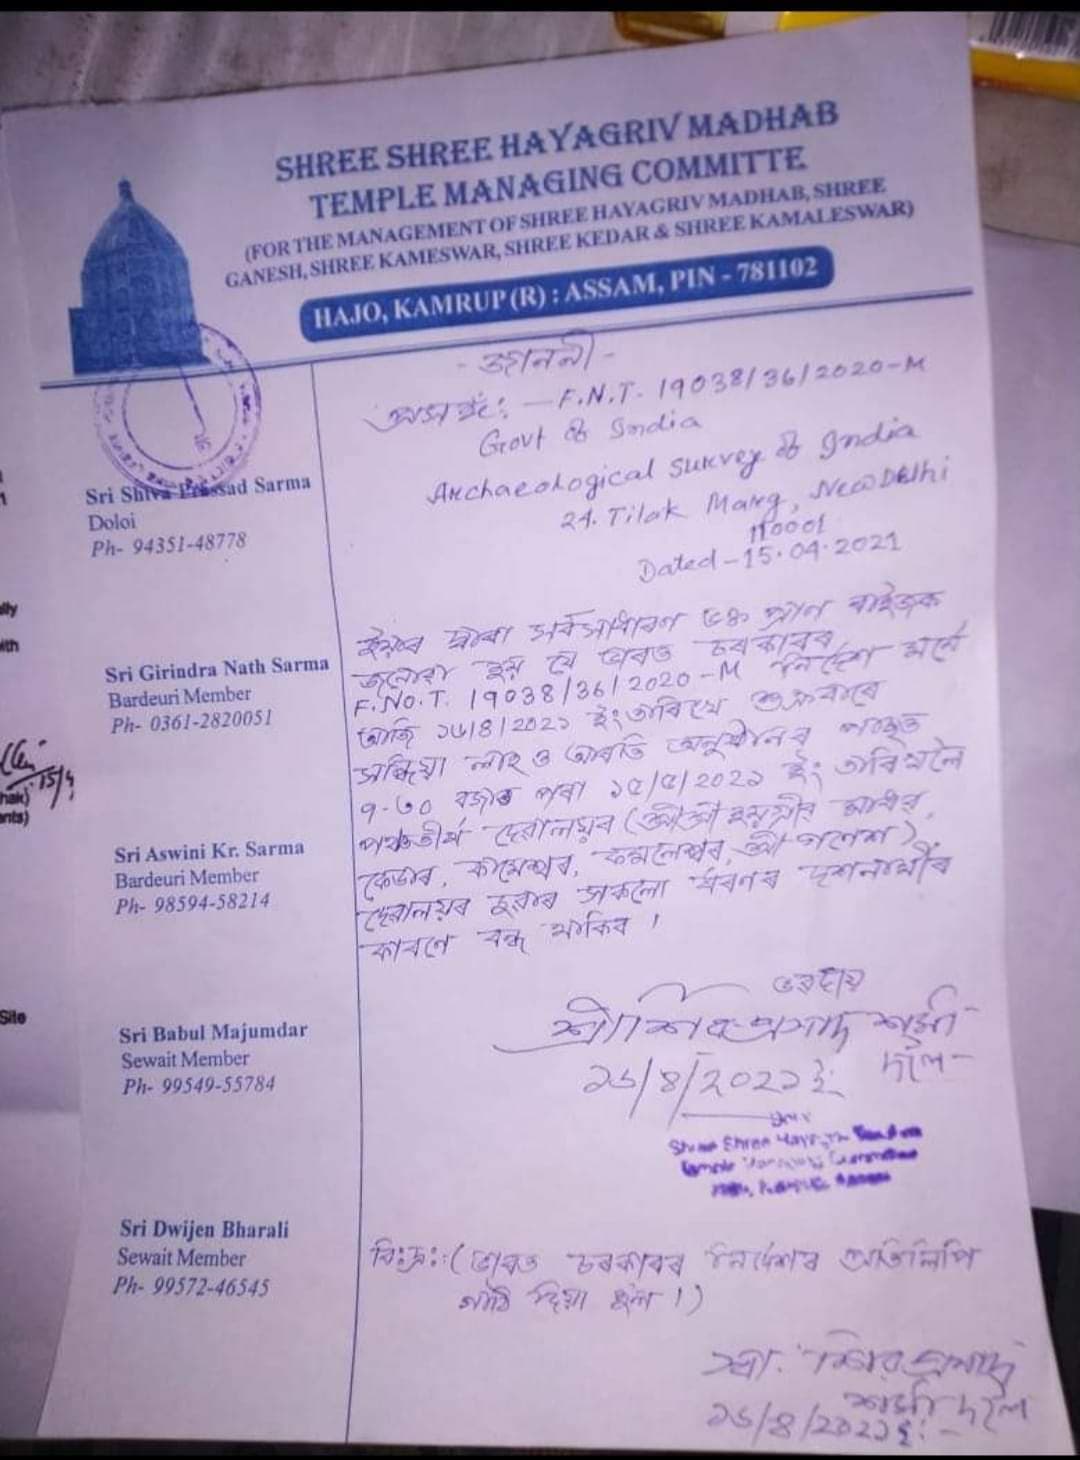 SHREE SHREE HAYAGRIV MADHAB
TEMPLE MANAGING COMMITTE
(FOR THE MANAGEMENT OF SHREE HAYAGRIV MADHAB, SHREE
GANESH, SHREE KAMESWAR, SHREE KEDAR & SHREE KAMALESWAR)
HAJO, KAMRUP (R) : ASSAM, PIN - 781102
- জাননী -
প্ৰসংগ: — F.N.T. 19038/36/2020-M
Govt of India
Archaeological Survey of India
24. Tilak Marg, New Delhi
110001
Dated - 15.04.2021
Sri Shiva Prasad Sarma
Doloi
Ph- 94351-48778
Sri Girindra Nath Sarma
Bardeuri Member
Ph- 0361-2820051
Sri Aswini Kr. Sarma
Bardeuri Member
Ph- 98594-58214
Sri Babul Majumdar
Sewait Member
Ph- 99549-55784
Sri Dwijen Bharali
Sewait Member
Ph- 99572-46545
ইয়াৰ দ্বাৰা সৰ্বসাধাৰণ ভক্ত প্ৰাণ ৰাইজক
জনোৱা হয় যে ভাৰত চৰকাৰৰ
F.No.T. 19038/36/2020-M নিৰ্দেশ মৰ্মে
আজি ১৬/৪/২০২১ ইং তাৰিখে শুক্ৰবাৰে
সন্ধিয়া আৰতি অনুষ্ঠানৰ পাছত
৭-৩০ বজাৰ পৰা ১৫/৫/২০২১ ইং তাৰিখলৈ
পঞ্চতীৰ্থ দেৱালয়ৰ (শ্ৰীশ্ৰী হয়গ্ৰীৱ মাধৱ,
কেদাৰ, কামেশ্বৰ, কমলেশ্বৰ, শ্ৰী গণেশ)
দেৱালয়ৰ দুৱাৰ সকলো ধৰণৰ দৰ্শনাৰ্থীৰ
কাৰণে বন্ধ থাকিব।
ভৱদীয়
শ্ৰী শিৱ প্ৰসাদ শৰ্মা
দলৈ-
১৬/৪/২০২১ ইং
বি:দ্ৰ: (ভাৰত চৰকাৰৰ নিৰ্দেশৰ প্ৰতিলিপি
গাঁথি দিয়া হ'ল।)
শ্ৰী শিৱ প্ৰসাদ
শৰ্মা দলৈ
১৬/৪/২০২১ ইং-